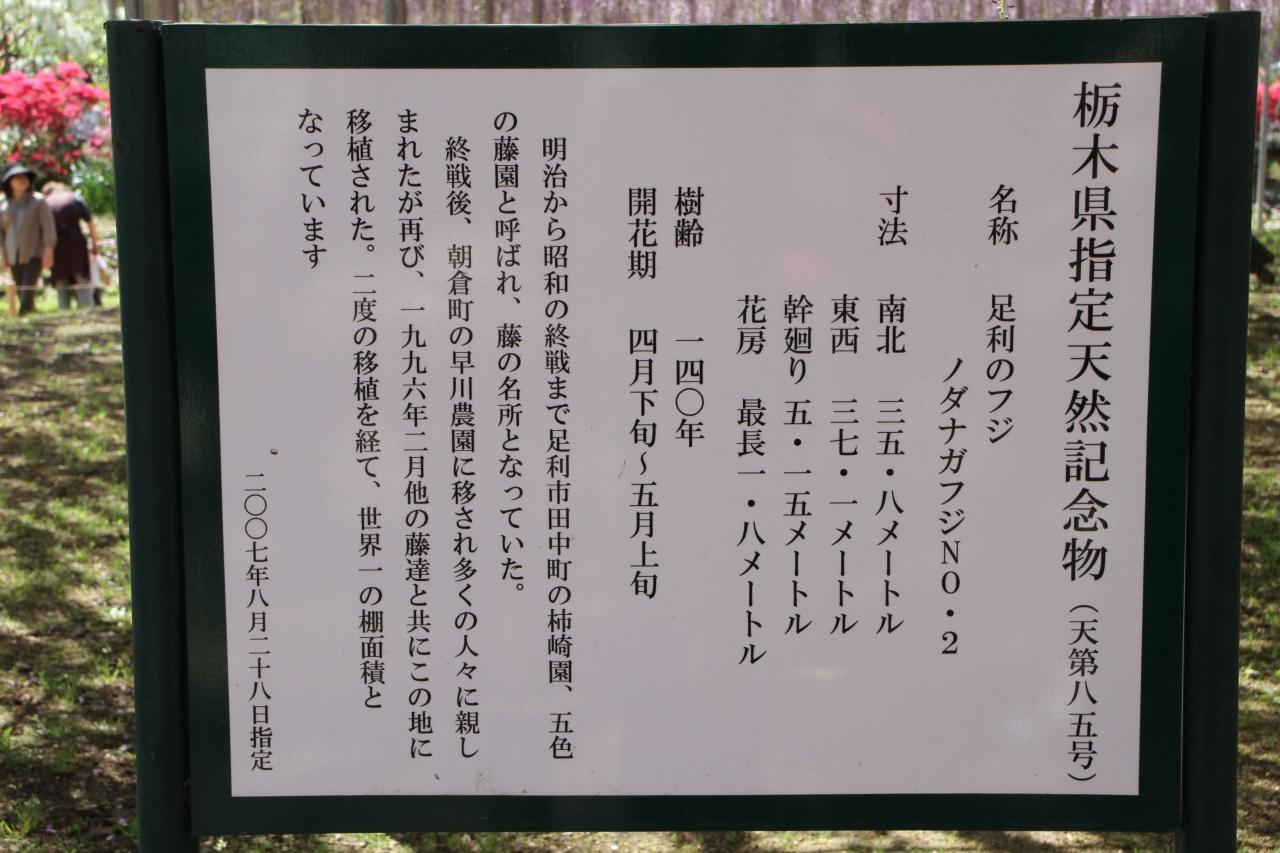 栃木県指定天然記念物（天第八五号）
名称　足利のフジ
ノダナガフジＮＯ・２
寸法　南北　三五・八メートル
東西　三七・一メートル
幹廻り　五・一五メートル
花房　最長一・八メートル
樹齢　一四〇年
開花期　四月下旬～五月上旬
明治から昭和の終戦まで足利市田中町の柿崎園、五色
の藤園と呼ばれ、藤の名所となっていた。
終戦後、朝倉町の早川農園に移され多くの人々に親し
まれたが再び、一九九六年二月他の藤達と共にこの地に
移植された。二度の移植を経て、世界一の棚面積と
なっています
二〇〇七年八月二十八日指定